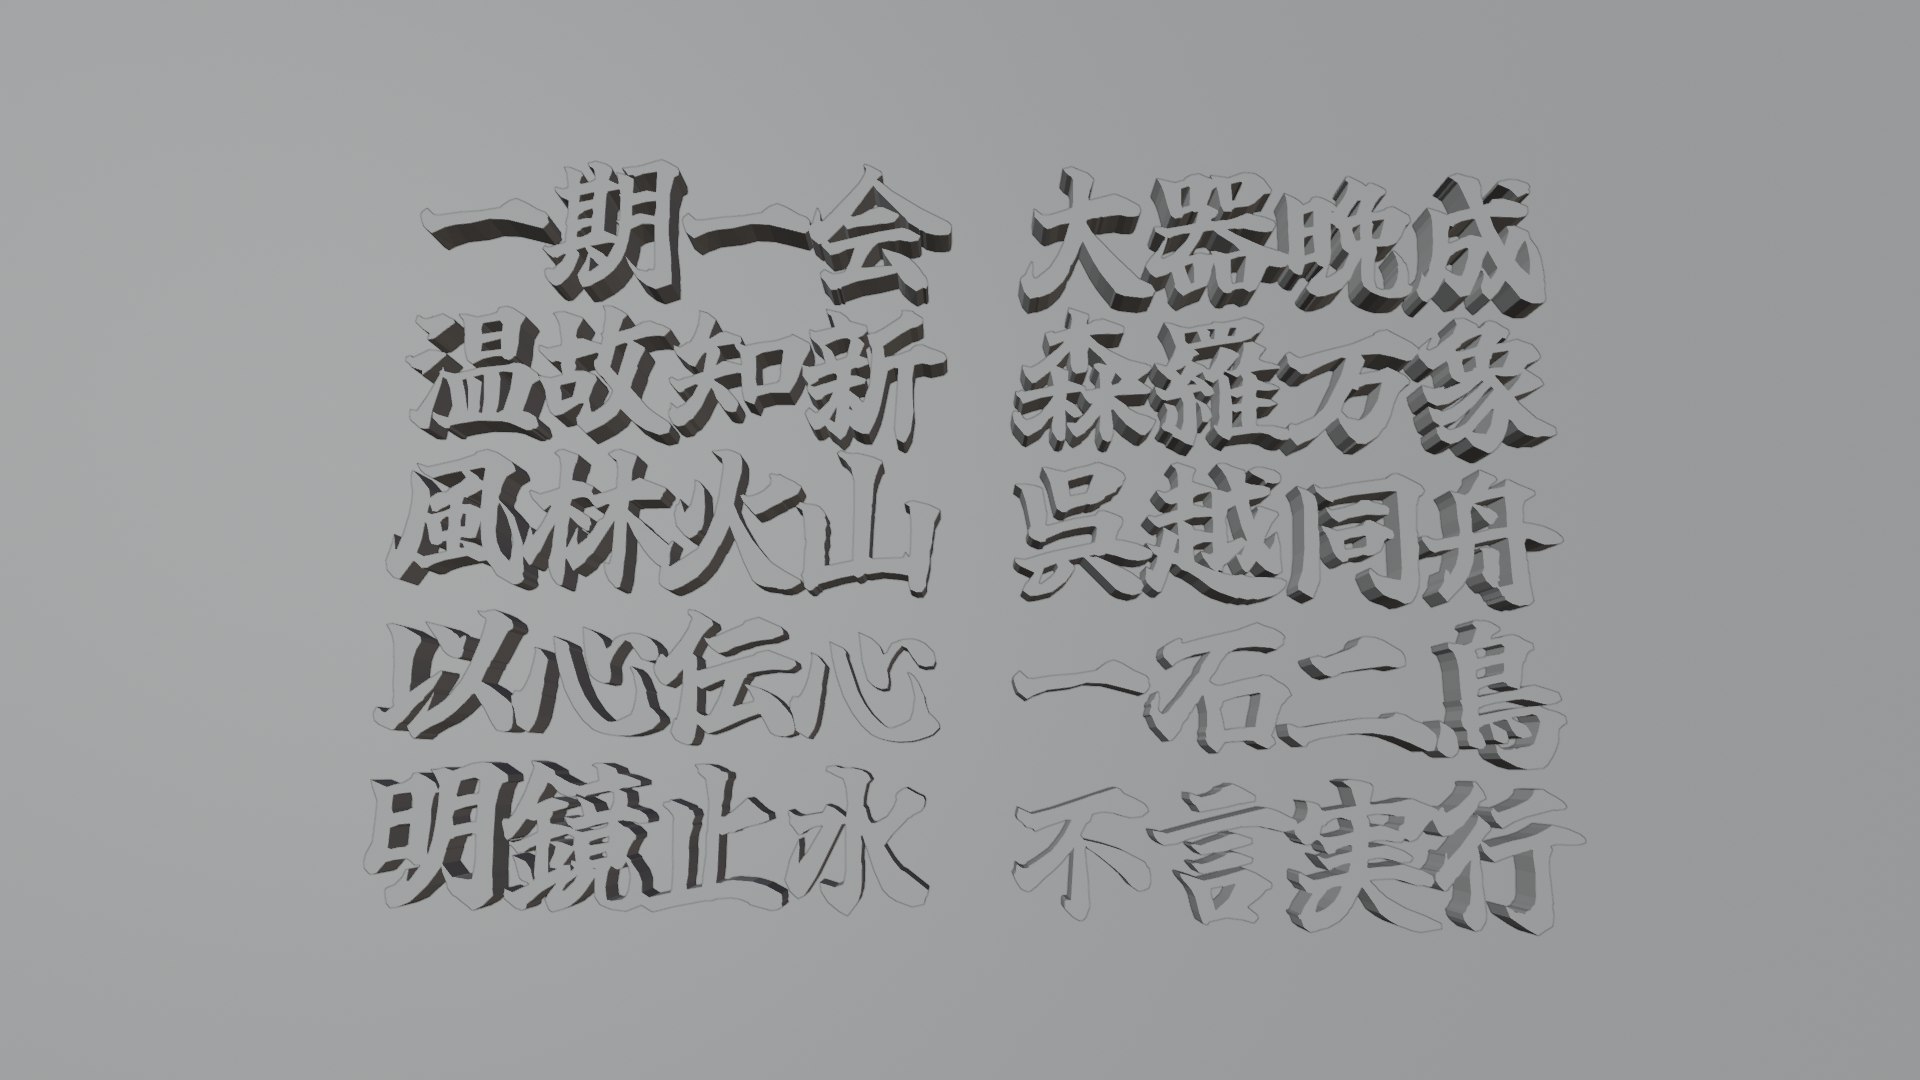 一期一会
温故知新
風林火山
以心伝心
明鏡止水
大器晩成
森羅万象
呉越同舟
一石二鳥
不言実行